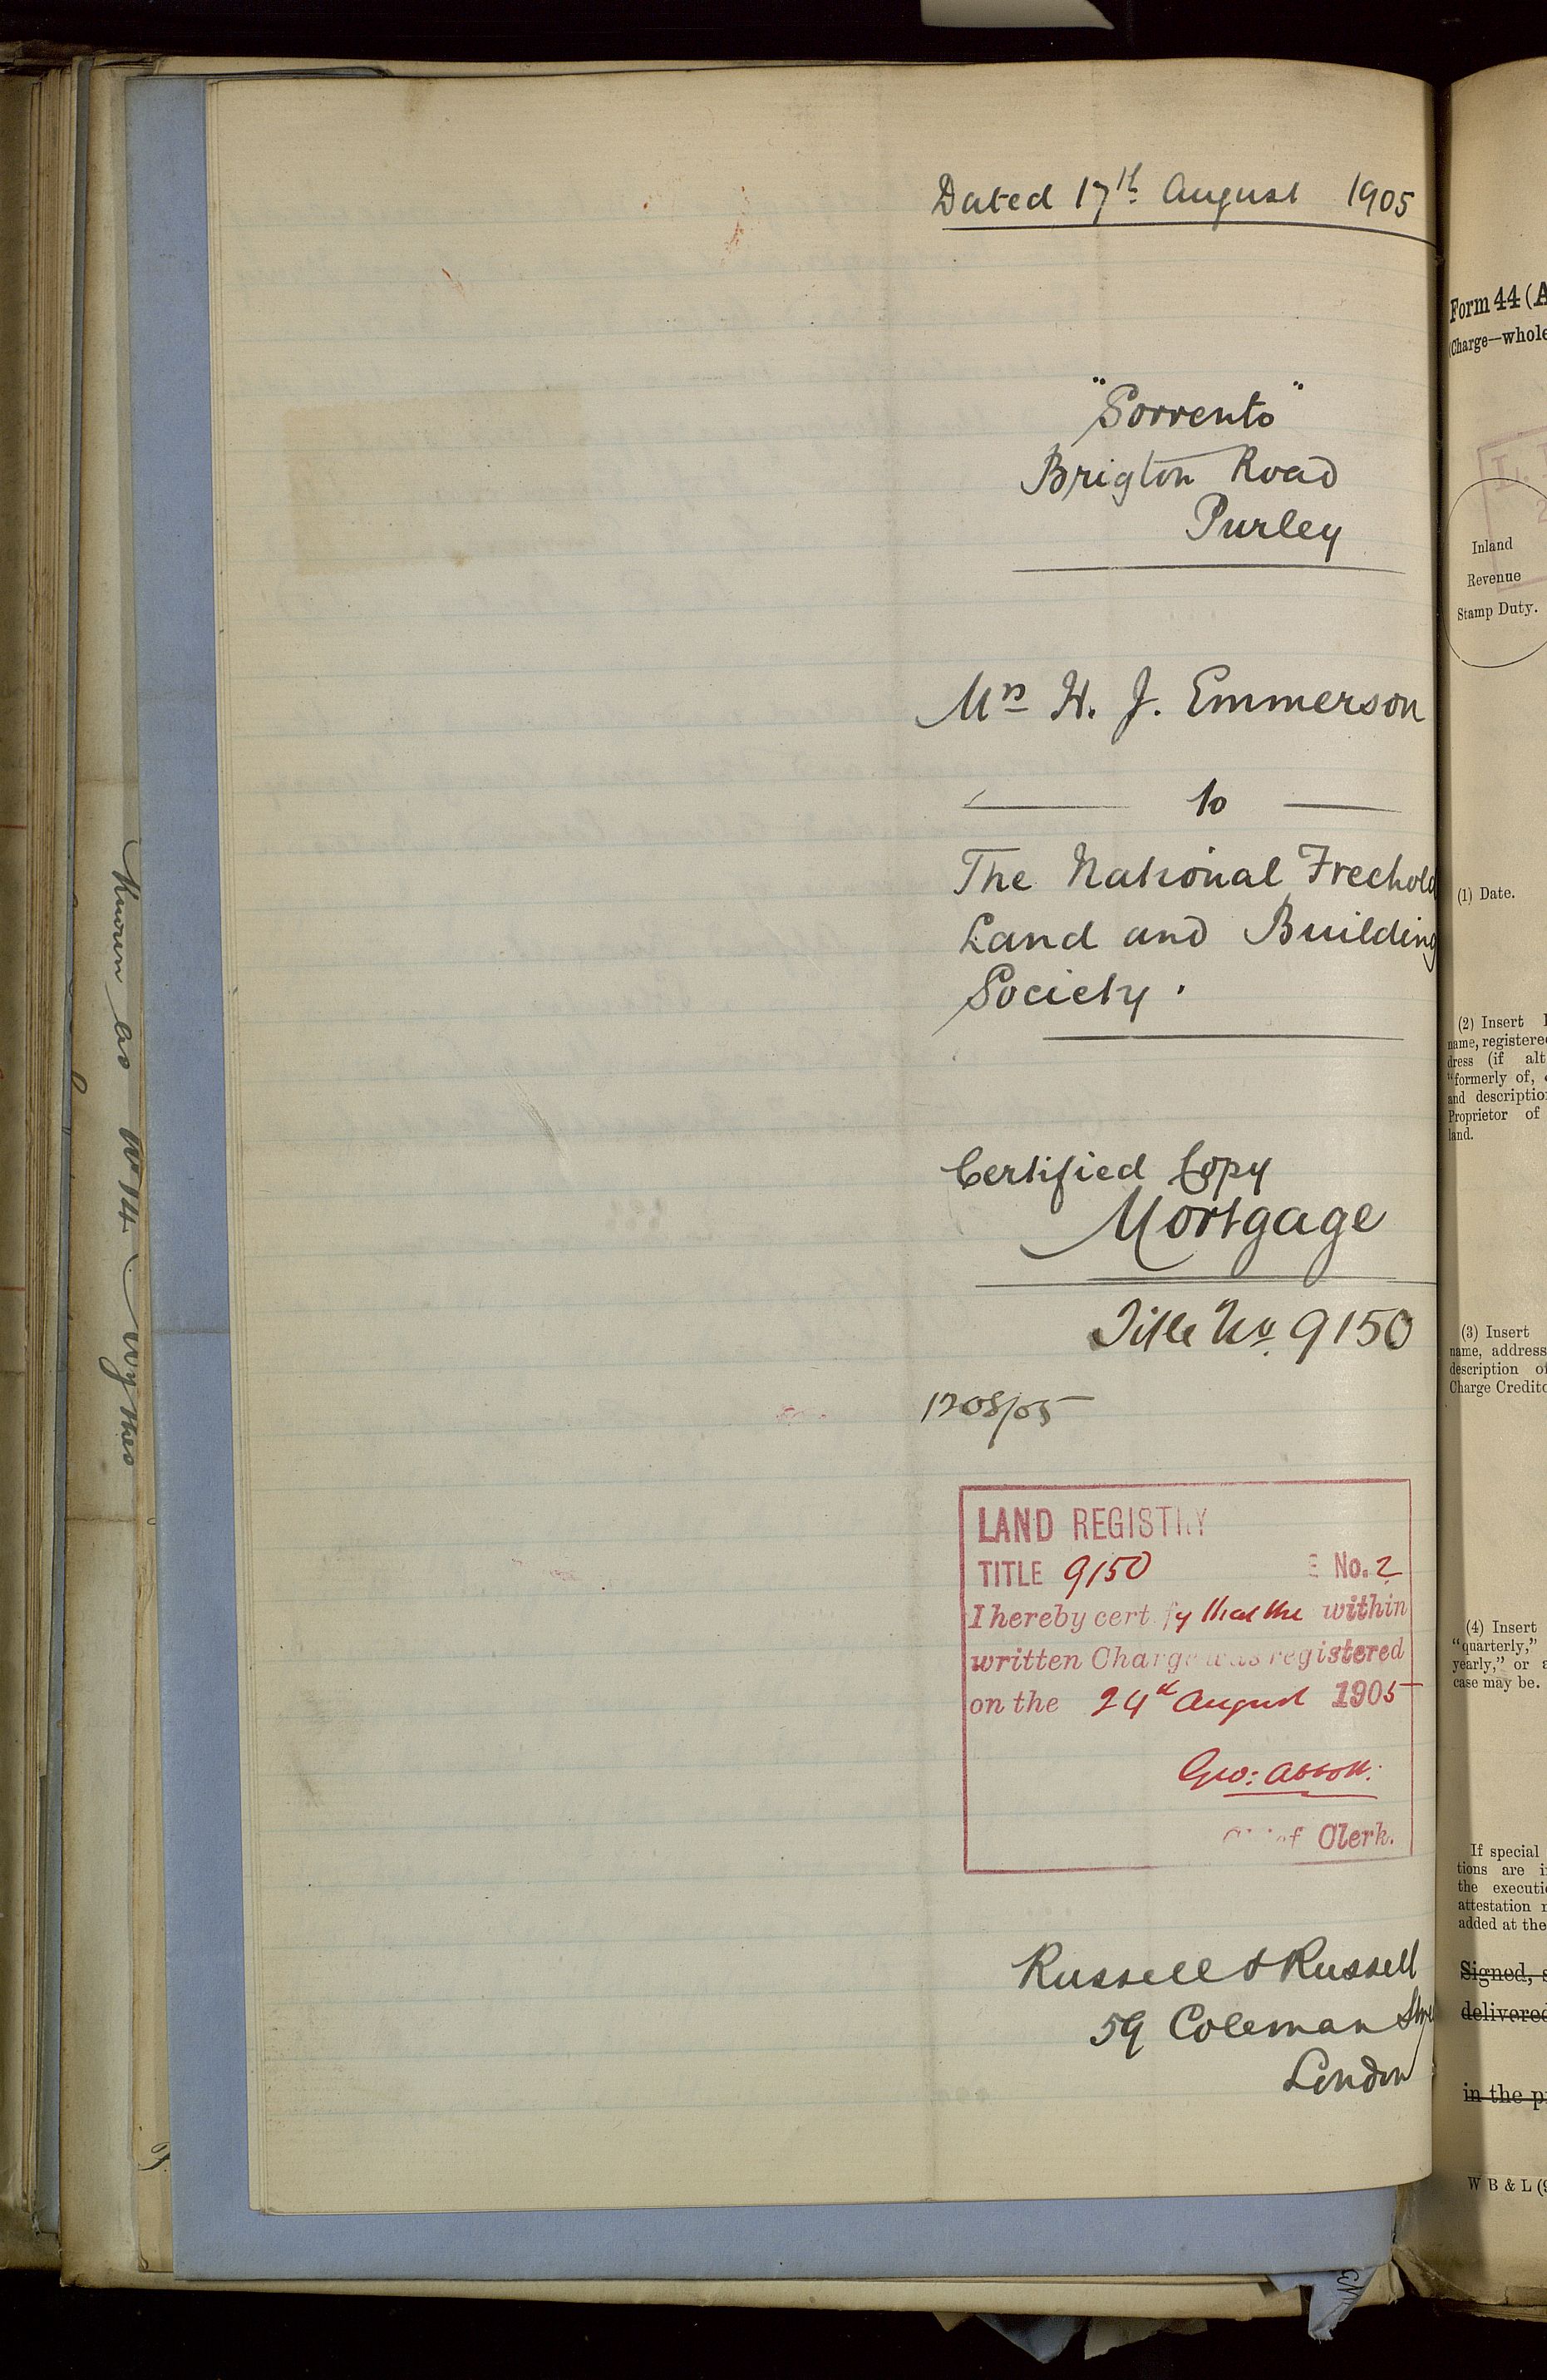 Dated 17th August 1905
"Sorrento"
Brigton Road
Purley
Mrs H. J. Emmerson
to
The National Freehold
Land and Building
Society.
Certified Copy
Mortgage
Title No. 9150
1208/05
LAND REGISTRY
TITLE 9150 E No. 2
I hereby certify that the within
written Charge was registered
on the 24th August 1905
Geo: Abbott.
Chief Clerk.
Russell & Russell
59 Coleman Stre
London
Known as No 14
Form 44 (A
(Charge—whole
Inland
Revenue
Stamp Duty.
(1) Date.
(2) Insert
name, registered
dress (if alt
"formerly of,
and description
Proprietor of
land.
(3) Insert
name, address
description of
Charge Credito
(4) Insert
"quarterly,"
yearly," or a
case may be.
If special
tions are i
the executi
attestation r
added at the
Signed, s
delivered
in the p
W B & L (